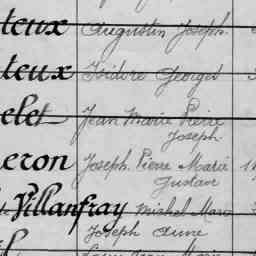 teux Augustin Joseph
teux Isidore Georges
elet Jean Marie Pierre
Joseph
eron Joseph Pierre Marie
Gustave
Villanfray Michel Marie
Joseph Aimé
Louis Jean Marie